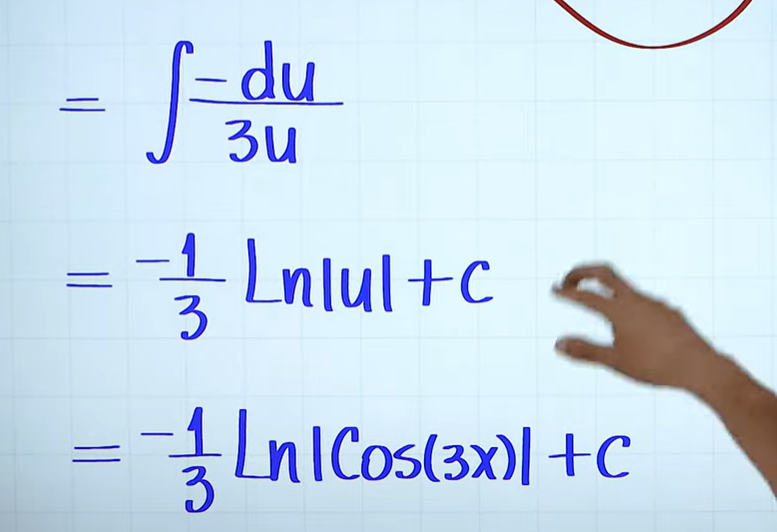 = ∫ -du/3u
= -1/3 Ln|u| + c
= -1/3 Ln|Cos(3x)| + c